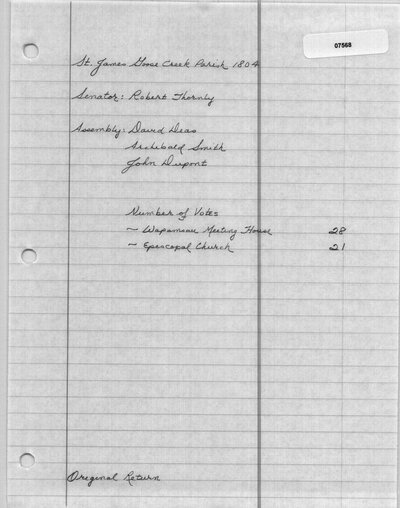 07568
St. James Goose Creek Parish 1804
Senator: Robert Thornly
Assembly: David Deas
Archibald Smith
John Dupont
Number of Votes
~ Wapamsau Meeting House 28
~ Episcopal Church 21
Original Return